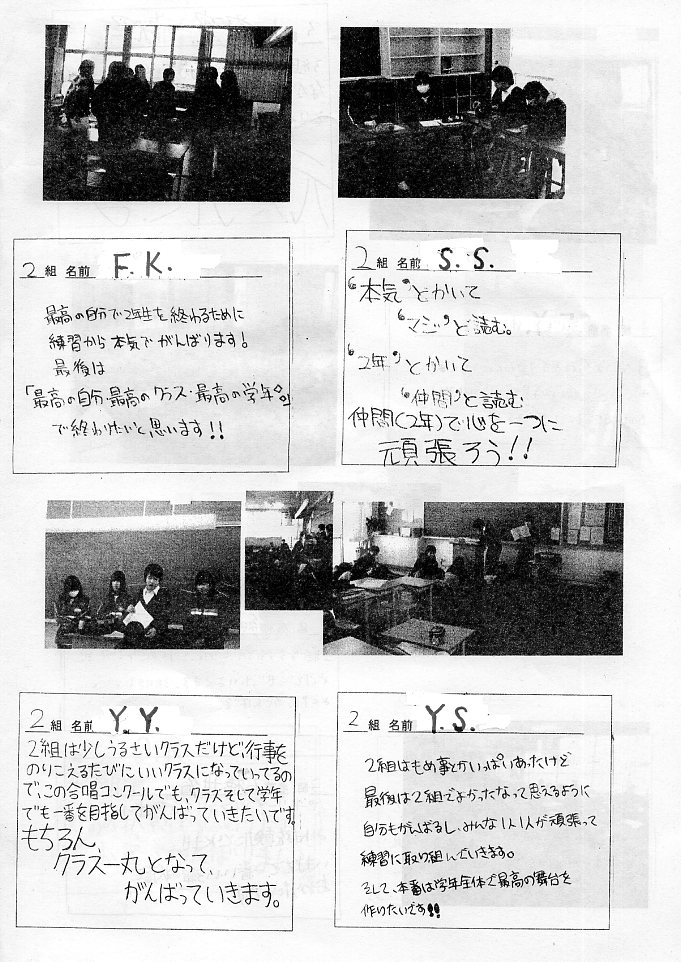 2組 名前 F.K.
最高の自分で2年生を終わるために
練習から本気でがんばります!
最後は
「最高の自分・最高のクラス・最高の学年」
で終わりたいと思います!!
2組 名前 S.S.
“本気”とかいて
“マジ”と読む。
“2年”とかいて
“仲間”と読む
仲間(2年)で心を一つに
頑張ろう!!
2組 名前 Y.Y.
2組は少しうるさいクラスだけど、行事を
のりこえるたびにいいクラスになっていってるの
で、この合唱コンクールでも、クラスそして学年
でも一番を目指してがんばっていきたいです。
もちろん、
クラス一丸となって、
がんばっていきます。
2組 名前 Y.S.
2組はもめ事とかいっぱいあったけど
最後は2組でよかったなって思えるように
自分もがんばるし、みんな1人1人が頑張って
練習に取り組んでいきます。
そして、本番は学年全体で最高の舞台を
作りたいです!!